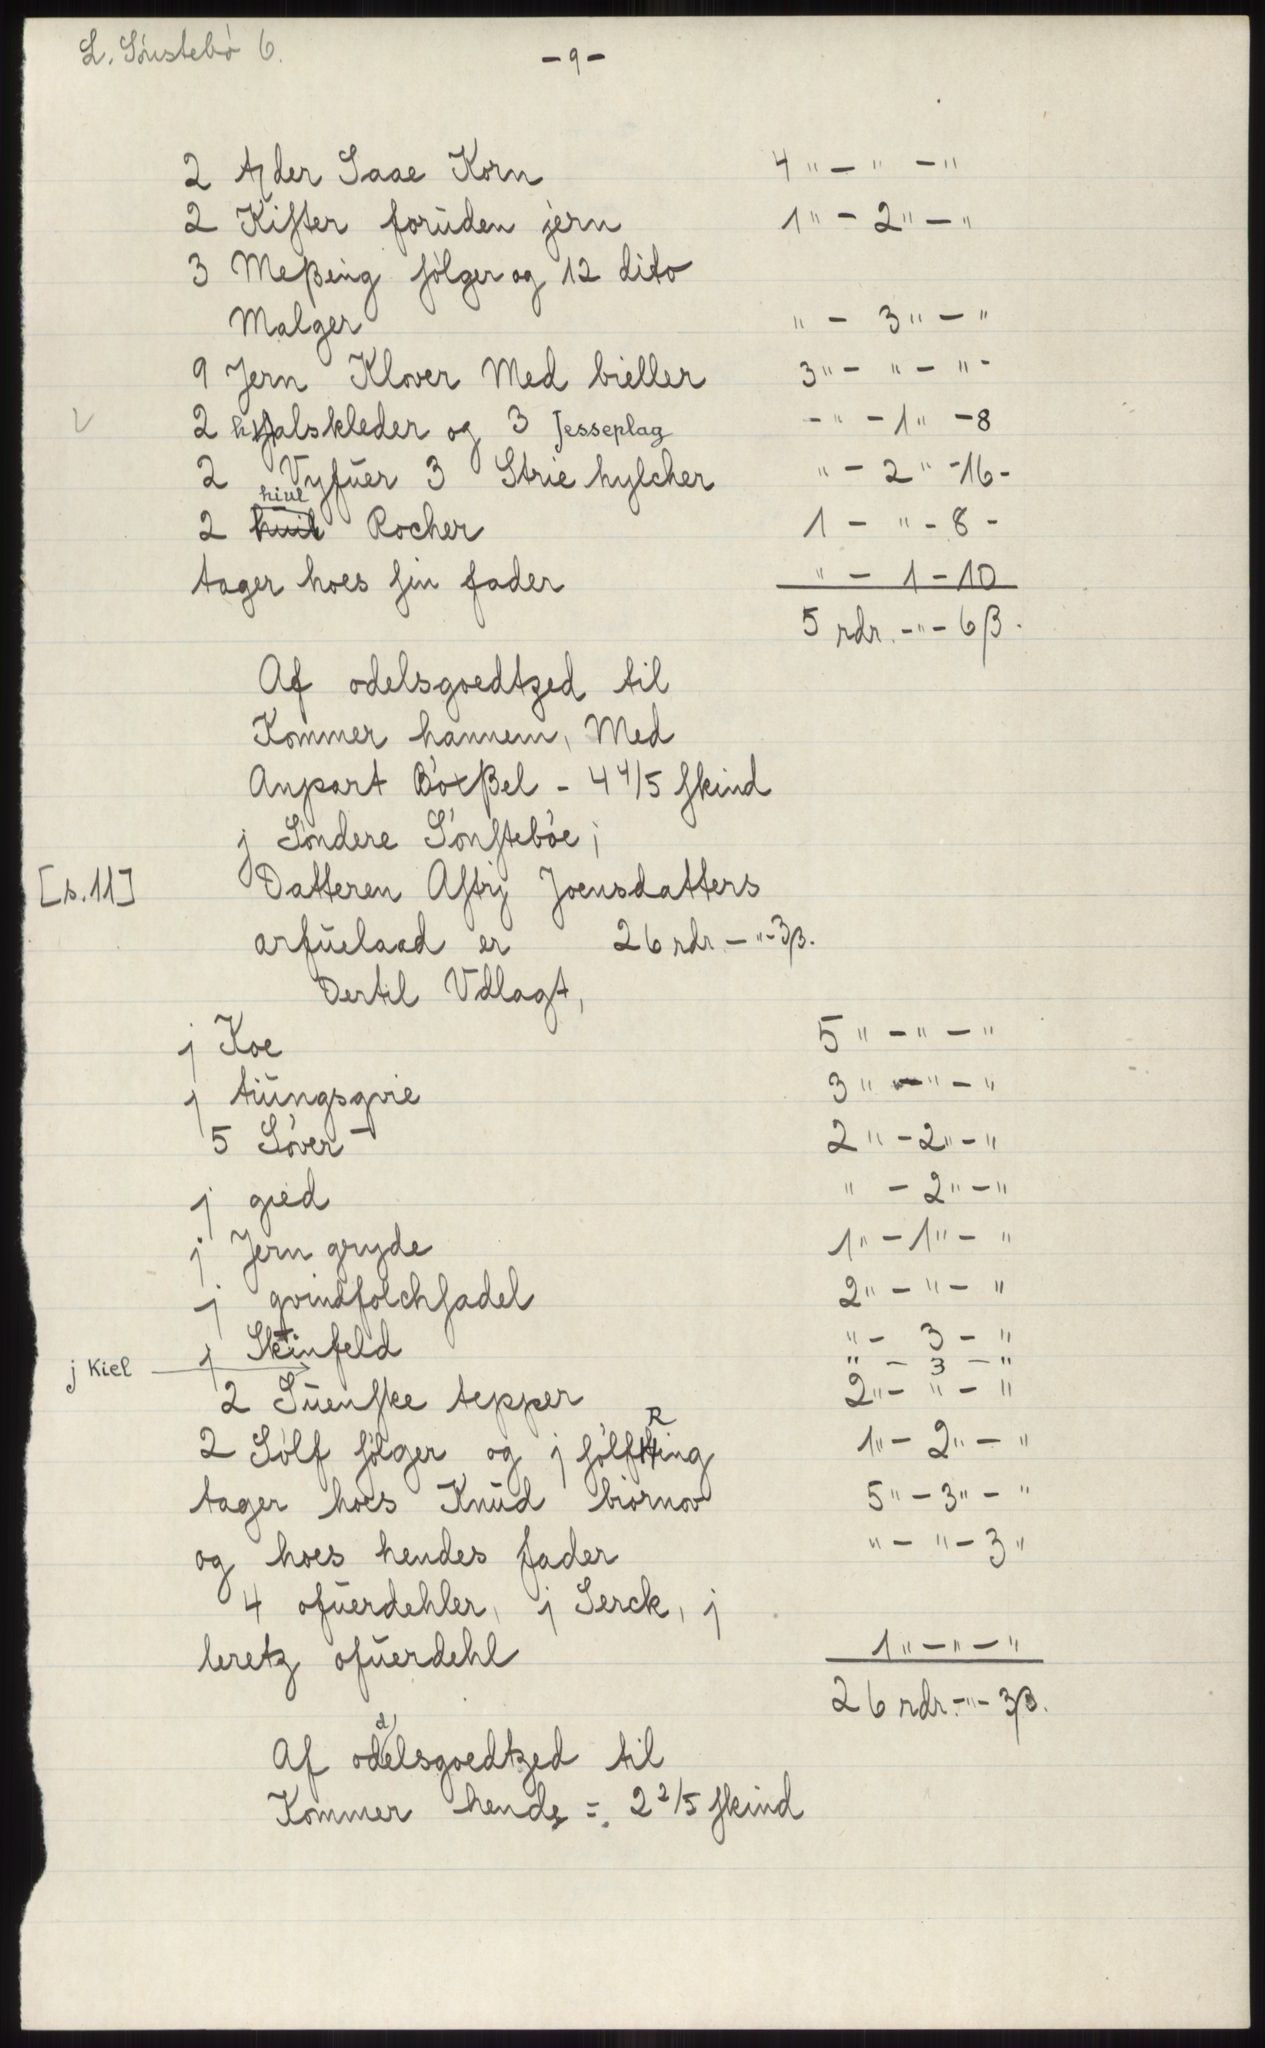 L. Sönstebö 6.
- 9 -
2 tdr Saae Korn 4 " - " - "
2 Kister foruden jern 1 " - 2 " - "
3 Meßing sølger og 12 dito
Malger " - 3 " - "
9 Jern Klover Med bieller 3 " - " - " -
2 halskleder og 3 Jesseplag - " - 1 " - 8
2 Vyfuer 3 Strie hylcher " - 2 " - 16 -
hiul
2 huil Rocher 1 - " - 8 -
tager hoes sin fader " - 1 - 10
5 rdr. - " - 6 β.
Af odelsgoedtzed til
Kommer hannem, Med
Anpart Böxßel - 4 4/5 skind
j Söndere Sönsteböe;
[s. 11] Datteren Astrj Joensdatters
arfuelaad er 26 rdr. - " - 3 β.
Dertil Vdlagt,
j Koe 5 " - " - "
j tiungsqvie 3 " - " - "
5 Söver - 2 " - 2 " - "
j gied " - 2 " - "
j Jern gryde 1 " - 1 " - "
j qvindfolchsadel 2 " - " - "
j Skinfeld " - 3 - "
j Kiel " - 3 - "
2 Suenske tepper 2 " - " - "
2 Sölf sölger og j sölf Ring 1 " - 2 " - "
tager hoes Knud biornov 5 " - 3 " - "
og hoes hendes fader " - " - 3 "
4 ofuerdehler, j Serck, j
leretz ofuerdehl 1 " - " - "
26 rdr. - " - 3 β.
Af odelsgoedtzed til
Kommer hende = 2 2/5 skind